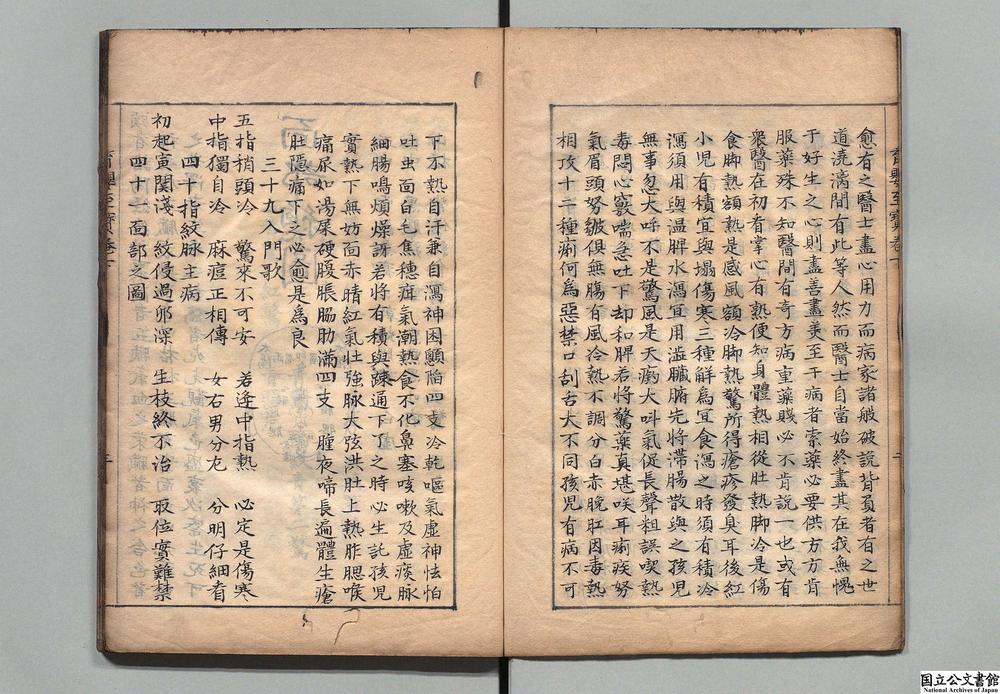 愈有之醫士盡心用力而病家諸般破說背負者有之世
道澆漓間有此等人然而醫士自當始終盡其在我無愧
于好生之心則盡善盡美至于病者索藥必要供方方肯
服藥殊不知醫間有奇方病重藥賤必不肯說一也或有
衆醫在初看掌心有熱便知身體熱相從肚熱脚冷是傷
食脚熱額熱是感風額冷脚熱驚所得瘡疹發臭耳後紅
小兒有積宜與塌傷寒三種解爲宜食瀉之時須有積冷
瀉須用與溫脾水瀉宜用滋臟腑先將滯腸散與之孩児
無事忽大呼不是驚風是天癇大呌氣促長聲粗誤喫熱
毒悶心竅喘急吐下却和脾若將驚藥真堪咲耳痢疾努
氣眉頭努皺俱無腸有風冷熱不調分白赤脫肛因毒熱
相攻十二種痢何爲惡禁口刮舌大不同孩児有病不可
下不熱自汗兼自瀉神困顖陷四支冷乾嘔氣虛神怯怕
吐虫面白毛焦穗疳氣潮熱食不化鼻塞咳嗽及虛痰脉
細腸鳴煩燥訝若將有積與踈通下了之時必生託孩児
實熱下無妨面赤睛紅氣壯強脉大弦洪肚上熱胙腮喉
痛尿如湯屎硬腹脹脇肋滿四支 腫夜啼長遍體生瘡
肚隱痛下之必愈是爲良
三十九入門歌
五指梢頭冷 驚來不可安 若逢中指熱 必定是傷寒
中指獨自冷 麻痘正相傳 女右男分左 分明仔細看
四十指紋脉主病
初起寅関淺 紋侵過夘深 生枝終不治 取位實難禁
四十一面部之圖
育嬰至寳卷下
国立公文書館
National Archives of Japan